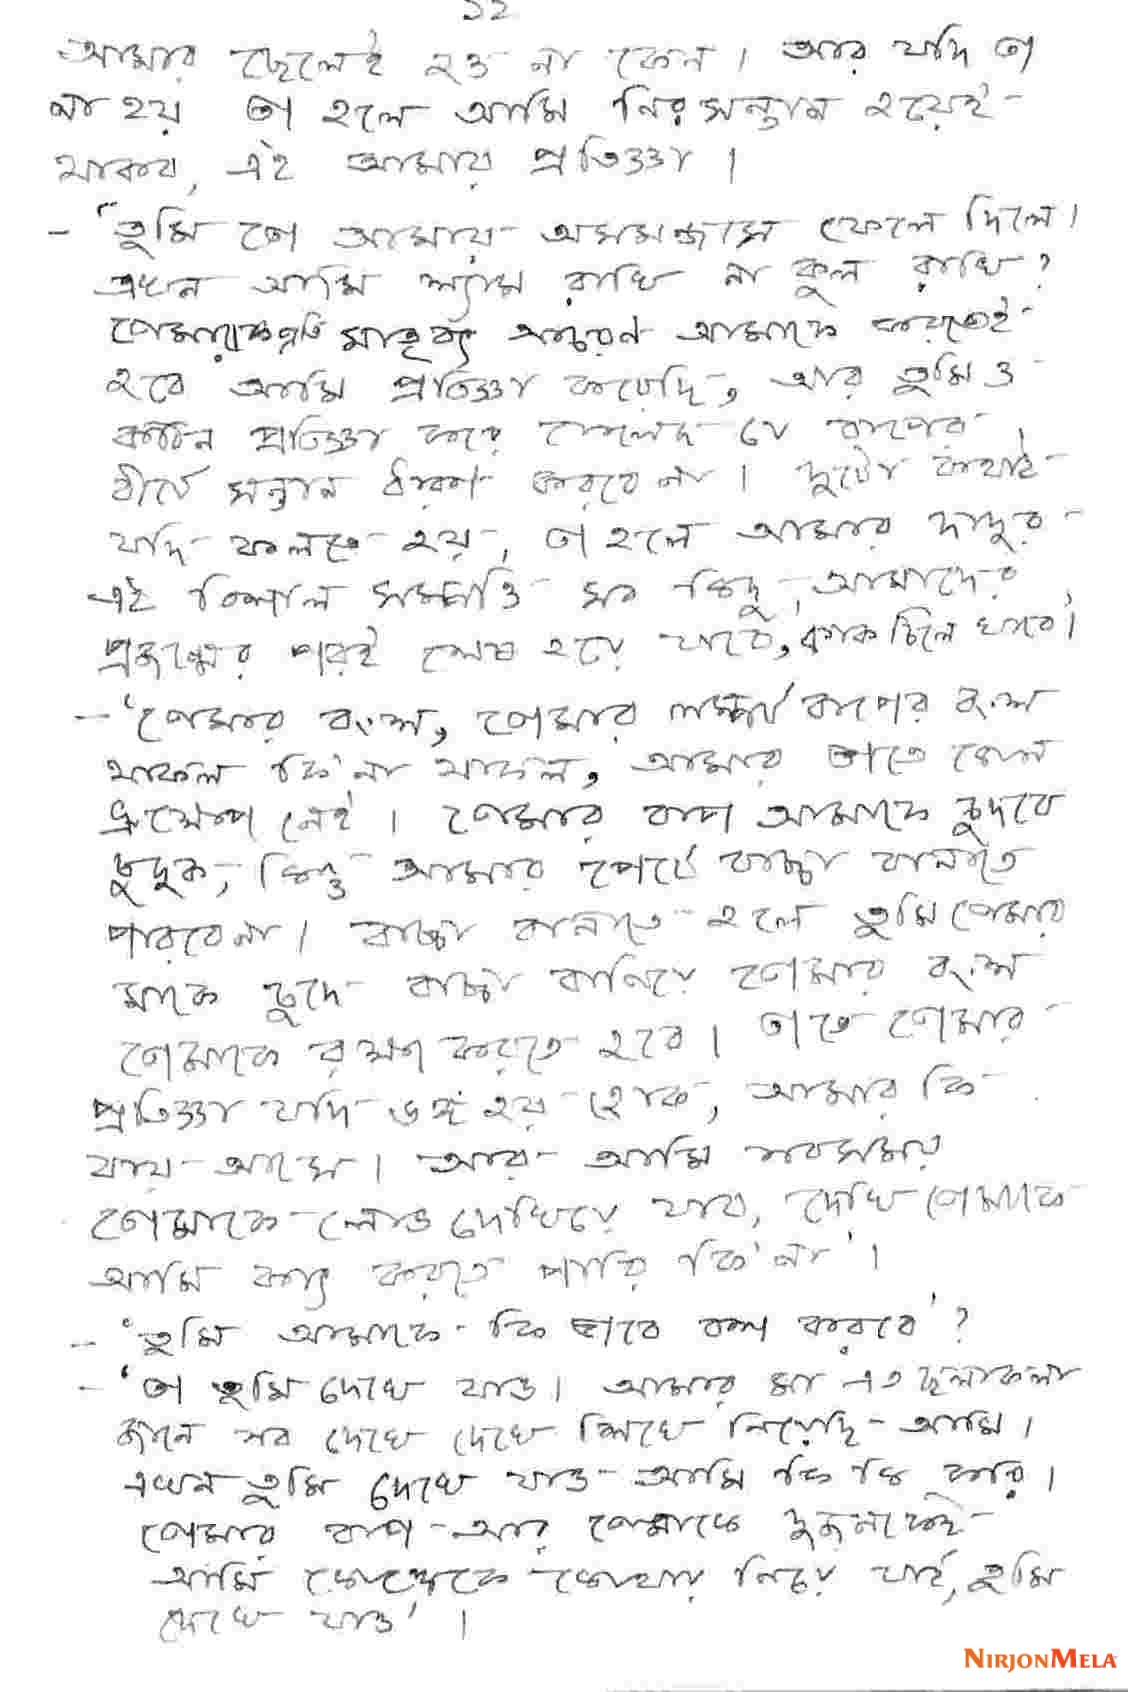 ১২
আমার ছেলেই হও না কেন। আর যদি তা
না হয় তা হলে আমি নিরসন্তান হয়েই
থাকব, এই আমার প্রতিজ্ঞা।
- "তুমি তো আমায় অসমঞ্জসে ফেলে দিলে।
এখন আমি শ্যাম রাখি না কুল রাখি?
মাতৃবৎ আচরণ আমাকে করতেই
হবে আমি প্রতিজ্ঞা করেছি, আর তুমিও
কঠিন প্রতিজ্ঞা করে যে বাপের
বীর্যে সন্তান ধারণ করবে না। দুটো কথাই
যদি ফলতে হয়, তা হলে আমার দাদুর
এই বিশাল সম্পত্তি সব কিছু, আমাদের
প্রজন্মের পরই শেষ হয়ে যাবে, কাক চিলে খাবে।
- 'তোমার বংশ, তোমার বাপের বংশ
থাকল কি না থাকল, আমার তাতে কোন
ভ্রুক্ষেপ নেই। তোমার বাপ আমাকে চুদবে
চুদুক, কিন্তু আমার পেটে বাচ্চা বানাতে
পারবে না। বাচ্চা বানাতে হলে তুমি তোমার
মাকে চুদে বাচ্চা বানিয়ে তোমার বংশ
তোমাকে রক্ষা করতে হবে। তাতে তোমার
প্রতিজ্ঞা যদি ভঙ্গ হয় হোক, আমার কি
যায় আসে। আর আমি সবসময়
তোমাকে লোভ দেখিয়ে যাব, দেখি তোমাকে
আমি কাবু করতে পারি কি না'।
- 'তুমি আমাকে কি ভাবে বশ করবে'?
- 'তা তুমি দেখে যাও। আমার মা এত ছলাকলা
জানে সব দেখে দেখে শিখে নিয়েছি আমি।
এখন তুমি দেখে যাও আমি কি কি করি।
তোমার বাপ আর তোমাকে দুজনকেই
আমি কোথায় নিয়ে যাই, তুমি
দেখে যাও'।
NIRJONMELA